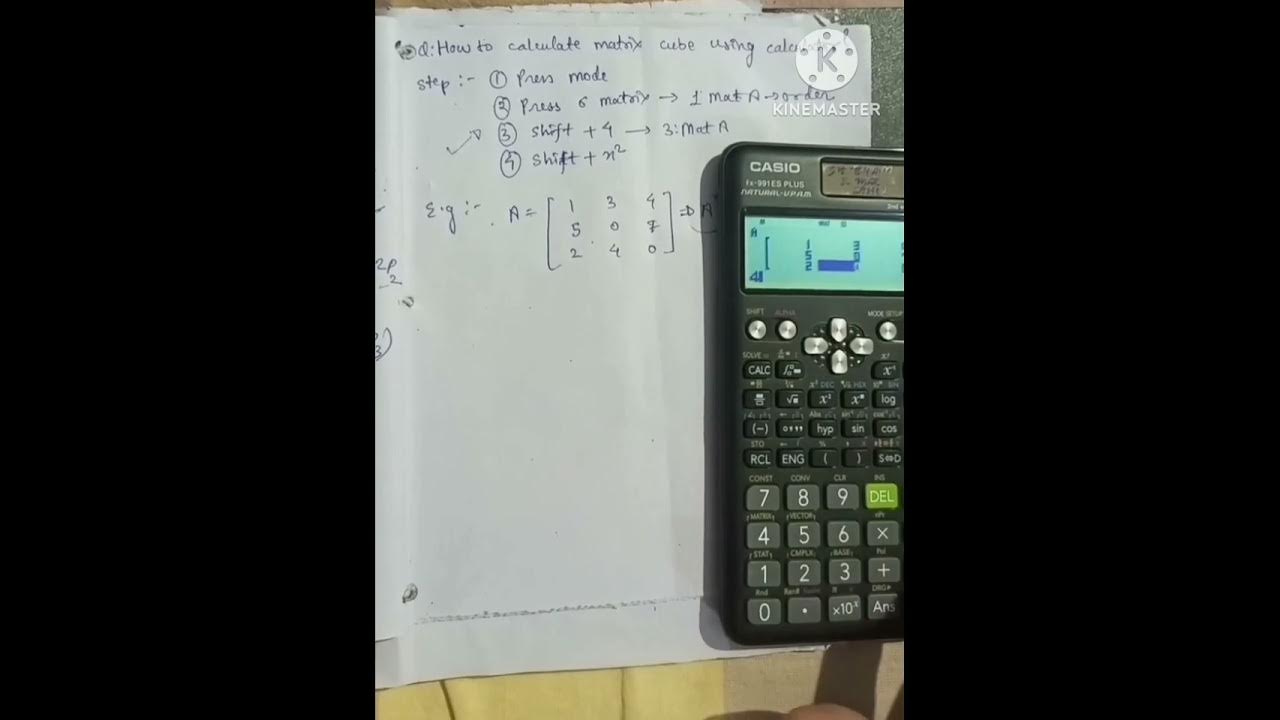 Q:How to calculate matrix cube using calculator
step :- ① Press mode
② Press 6 matrix → 1 Mat A → order
③ Shift + 4 → 3: Mat A
④ Shift + x²
E.g :- A = [ 1 3 4
5 0 7
2 4 0 ] ⇒ A
2p
2
3)
KINEMASTER
CASIO
fx-991ES PLUS
NATURAL-V.P.A.M.
A
1 3
5
2
4
SHIFT ALPHA MODE SETUP
SOLVE =
CALC x⁻¹
√ x² log
(−) hyp sin cos
STO
RCL ENG ( ) S⇔D
CONST CONV CLR INS
7 8 9 DEL
MATRIX VECTOR nPr
4 5 6 ×
STAT CMPLX BASE Pol
1 2 3 +
Rnd Ran# π DRG▸
0 . ×10ˣ Ans